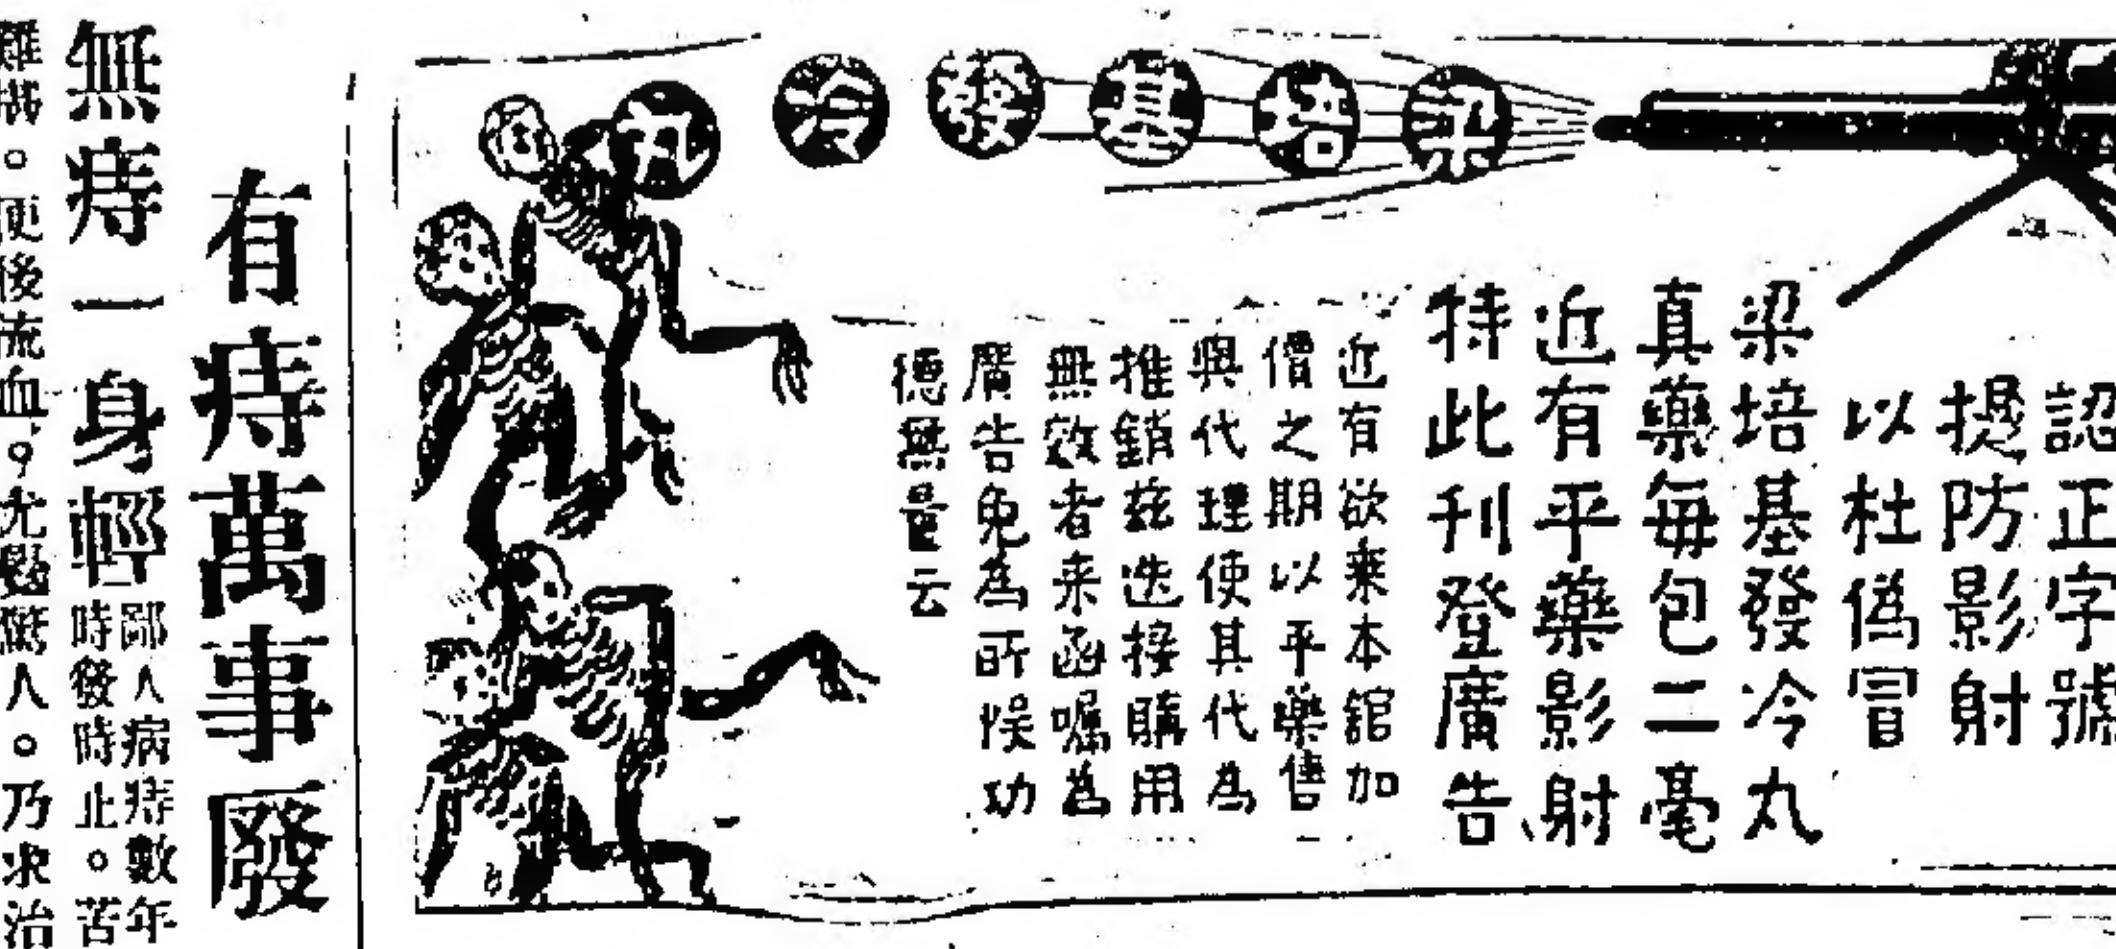 梁培基發冷丸
認正字號
提防影射
以杜僞冒
梁培基發冷丸
真藥每包二毫
近有平藥影射
特此刊登廣告
近有欲乘本舘加
價之期以平藥售
與代理使其代為
推銷茲迭接購用
無效者来函囑為
廣告免為所悮功
德無量云
有痔萬事廢
無痔一身輕
鄙人病痔數年
時發時止。苦
便後流血，尤驚人。乃求治